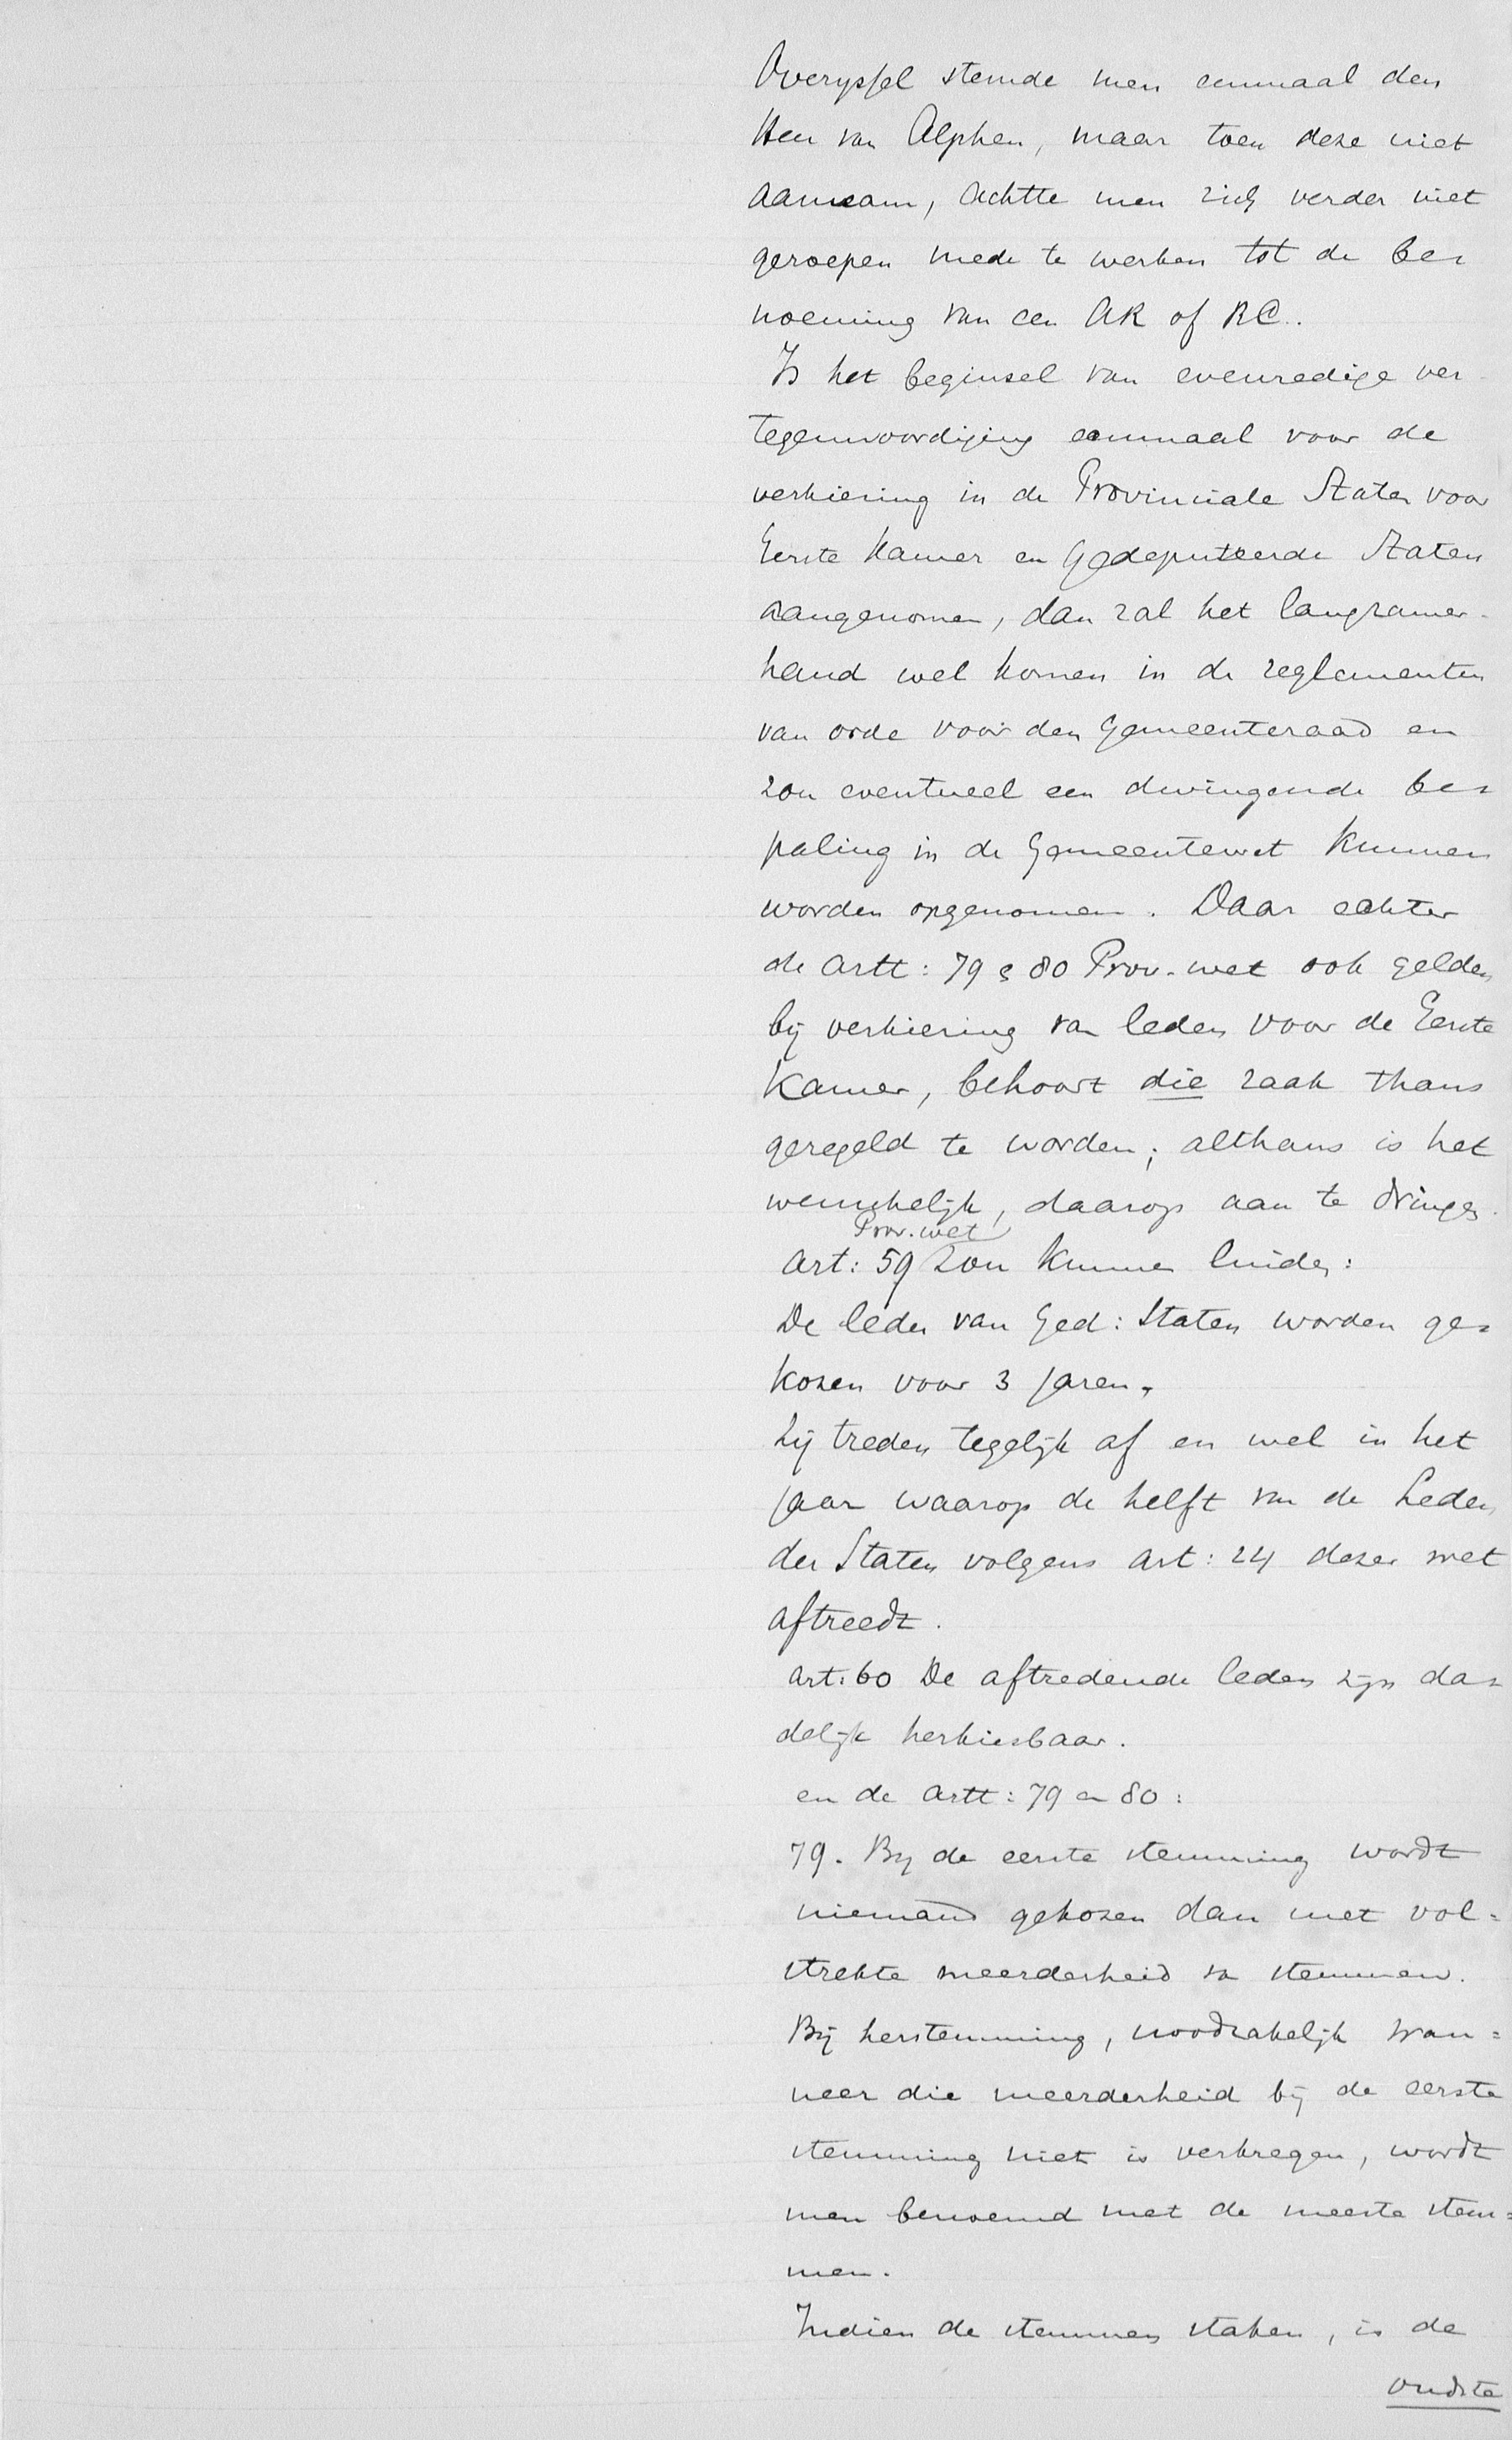 Overyssel stemde men eenmaal den
Heer van Alphen, maar toen deze niet
aannam, achtte men zich verder niet
geroepen mede te werken tot de be=
noeming van een AR of RC.
Is het beginsel van evenredige ver-
tegenwoordiging eenmaal voor de
verkiezing in de Provinciale Staten voor
Eerste Kamer en Gedeputeerde Staten
aangenomen, dan zal het langzamer-
hand wel komen in de reglementen
van orde voor den Gemeenteraad en
zou eventueel een dwingende be=
paling in de Gemeentewet kunnen
worden opgenomen. Daar echter
de artt: 79 & 80 Prov. wet ook gelden
bij verkiezing van leden voor de Eerste
Kamer, behoort die zaak thans
geregeld te worden; althans is het
wenschelijk, daarop aan te dringen.
Prov. wet
Art: 59 zou kunnen luiden:
De leden van Ged: Staten worden ge=
kozen voor 3 jaren.
Zij treden tegelijk af en wel in het
jaar waarop de helft van de Leden
der Staten volgens art: 24 dezer wet
aftreedt.
art: 60 De aftredende leden zijn da=
delijk herkiesbaar.
en de artt: 79 en 80:
79. Bij de eerste stemming wordt
niemand gekozen dan met vol=
strekte meerderheid van stemmen.
Bij herstemming, noodzakelijk wan=
neer die meerderheid bij de eerste
stemming niet is verkregen, wordt
men benoemd met de meeste stem=
men.
Indien de stemmen staken, is de
oudste